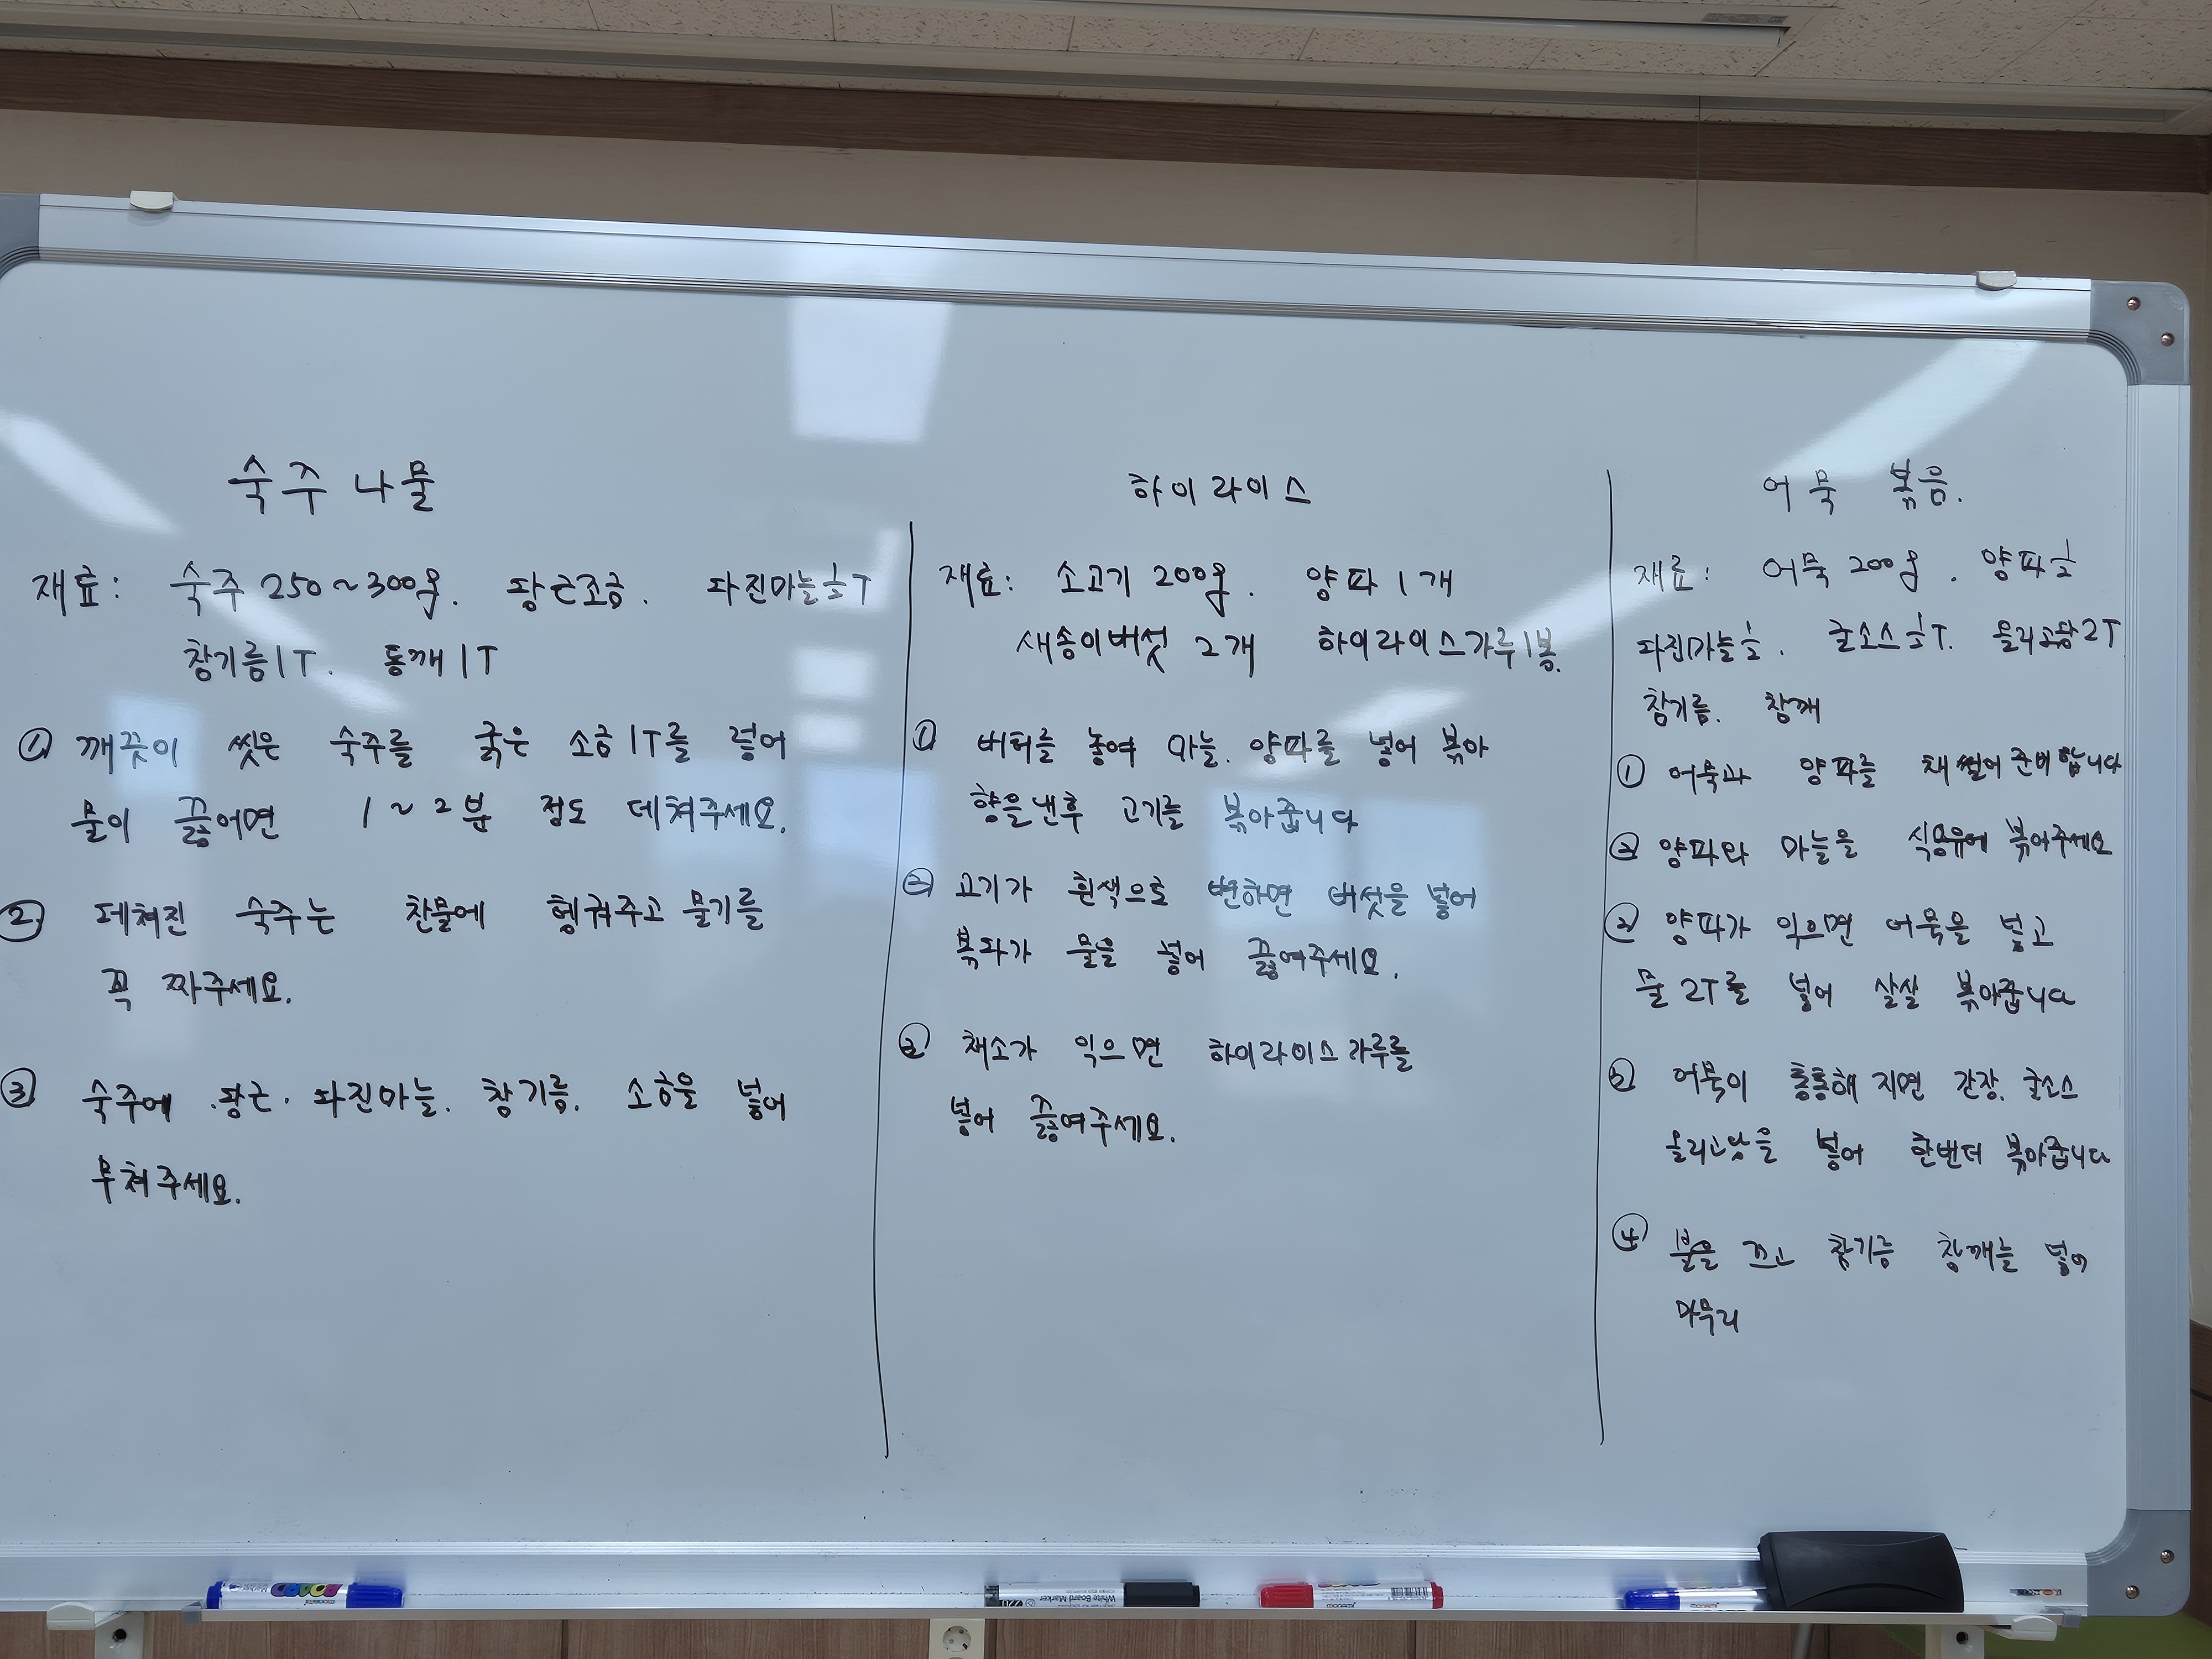 숙주 나물
재료: 숙주 250~300g. 당근조금. 다진마늘 ½T
참기름 1T. 통깨 1T
① 깨끗이 씻은 숙주를 굵은 소금 1T를 넣어
물이 끓어면 1~2분 정도 데쳐주세요.
② 데쳐진 숙주는 찬물에 헹궈주고 물기를
꼭 짜주세요.
③ 숙주에 .당근. 다진마늘. 참기름. 소금을 넣어
무쳐주세요.
하이라이스
재료: 소고기 200g. 양파 1개
새송이버섯 2개 하이라이스가루 1봉.
① 버터를 녹여 마늘. 양파를 넣어 볶아
향을낸후 고기를 볶아줍니다
② 고기가 흰색으로 변하면 버섯을 넣어
볶다가 물을 넣어 끓여주세요.
③ 채소가 익으면 하이라이스 가루를
넣어 끓여주세요.
어묵 볶음.
재료: 어묵 200g. 양파 ½
다진마늘 ½. 굴소스 ½T. 올리고당 2T
참기름. 참깨
① 어묵과 양파를 채썰어 준비합니다
② 양파와 마늘을 식용유에 볶어주세요
② 양파가 익으면 어묵을 넣고
물 2T를 넣어 살살 볶아줍니다
③ 어묵이 통통해 지면 간장. 굴소스
올리고당을 넣어 한번더 볶아줍니다
④ 불을 끄고 참기름 참깨를 넣어
마무리
White Board Marker